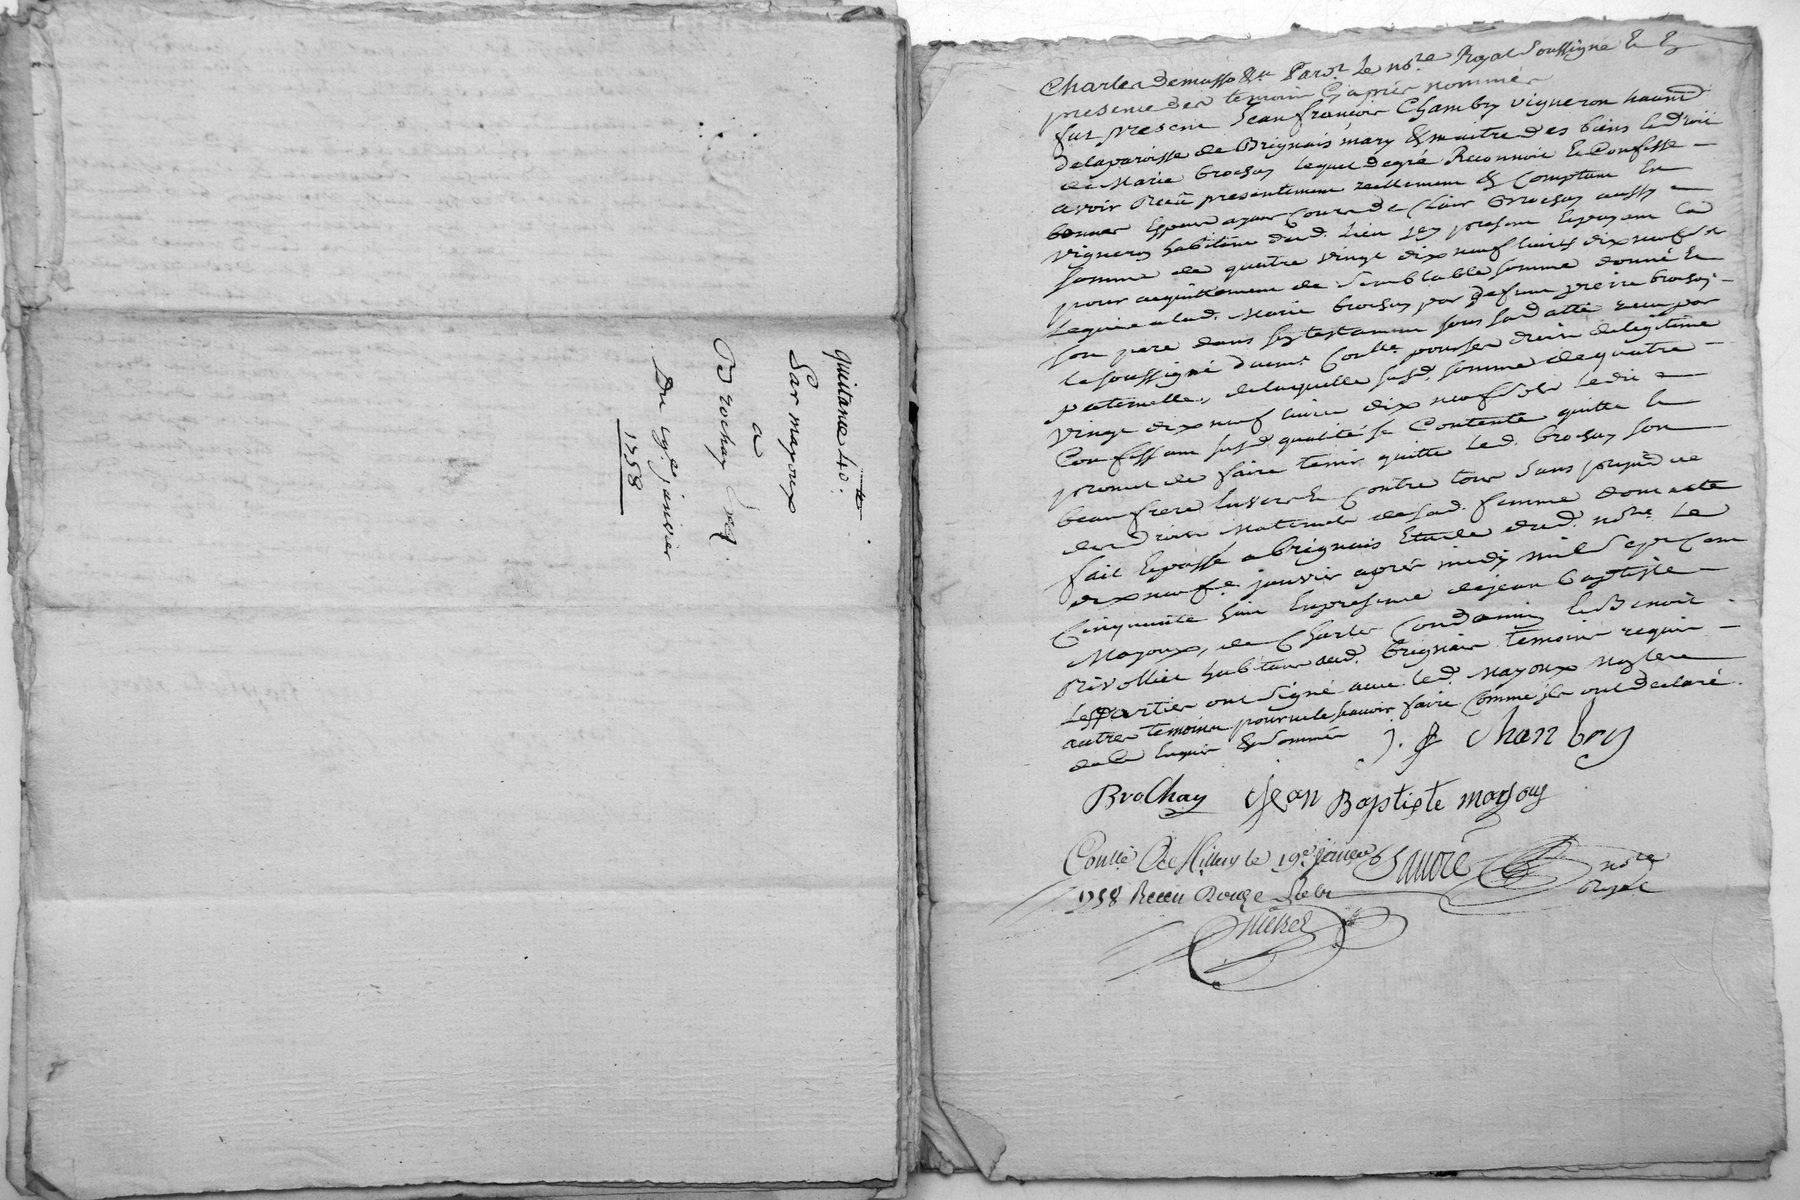 quittance 40 ℔:
par mayoux
a
Brochay
Du 19e janvier
1758
Charles Demasso &a Pardt le nore Royal soussigné & En
presence des temoins cy apres nommés
fut present Jean françois Chambry vigneron habitt
de la paroisse de Brignais mary & maitre des biens & droits
de Marie brochay lequel de gré Reconnoit & Confesse
avoir Receu presentement reellement & Comptant En
bonnes Especes ayant Cours de Clair Brochay aussy
vigneron habitant dud. lieu Icy present & payant la
somme de quatre vingt dix neuf livres dix neuf sols
pour acquittement de semblable somme donné &
leguée a lad. Marie brochay par defunt pierre brochay
son pere dans son testament sous sa datte receu par
le soussigné duemt Contlé pour ses droits de legitime
paternelle, de laquelle susd. somme de quatre
vingt dix neuf livres dix neuf sols ledit
Confessant susd. qualité se Contente quitte &
promet de faire tenir quitte led. brochay son
beau frere Envers & Contre tous sans prejudice
des droits Maternels de sad. femme dont acte
fait & passé a brignais Etude dud. nore le
dix neufe janvier apres midy mil sept Cent
Cinquante huit En presence de jean baptiste
Mayoux, de Charles Condamin & Benoit
Rivollier habitans aud. brignais temoins requis
les parties ont signé avec led. Mayoux non les
autres temoins pour ne le sçavoir faire Comme ils ont declaré
de ce Enquis & sommés j. f chanbry
Brochay jean Baptiste mayoux
Contlé a St Milluy le 19e janvier Sauoré nore
1758 Receu Douze sols Royal